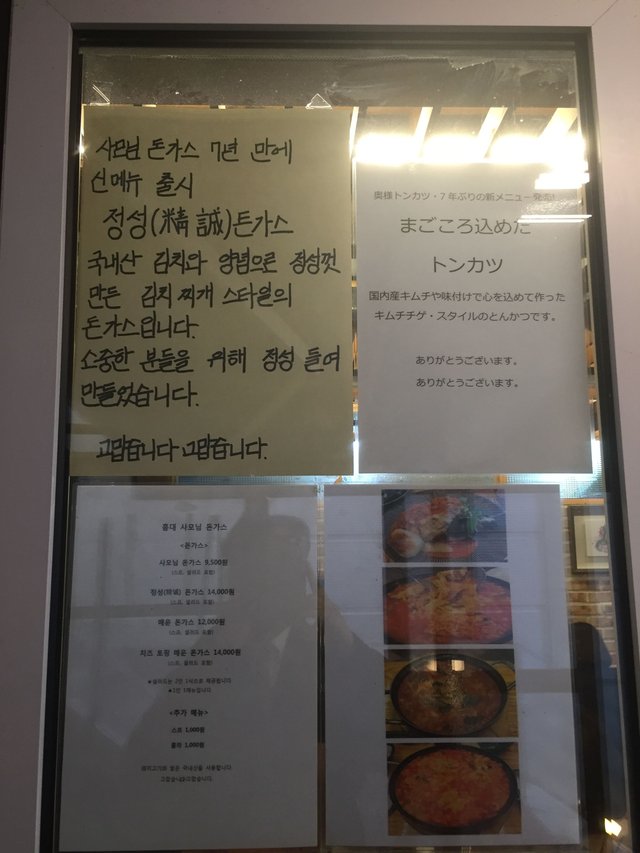 사모님 돈가스 7년 만에
신메뉴 출시
정성(精誠)돈가스
국내산 김치와 양념으로 정성껏
만든 김치찌개 스타일의
돈가스입니다.
소중한 분들을 위해 정성 들여
만들었습니다.
고맙습니다 고맙습니다.
奥様トンカツ・7年ぶりの新メニュー発売!
まごころ込めた
トンカツ
国内産キムチや味付けで心を込めて作った
キムチチゲ・スタイルのとんかつです。
ありがとうございます。
ありがとうございます。
홍대 사모님 돈가스
<돈가스>
사모님 돈가스 9,500원
(스프, 샐러드 포함)
정성(精誠) 돈가스 14,000원
(스프, 샐러드 포함)
매운 돈가스 12,000원
(스프, 샐러드 포함)
치즈 토핑 매운 돈가스 14,000원
(스프, 샐러드 포함)
★샐러드는 2인 1식으로 제공합니다
★1인 1메뉴입니다
<추가 메뉴>
스프 1,000원
콜라 1,000원
쌀은 국내산을 사용합니다.
고맙습니다고맙습니다.